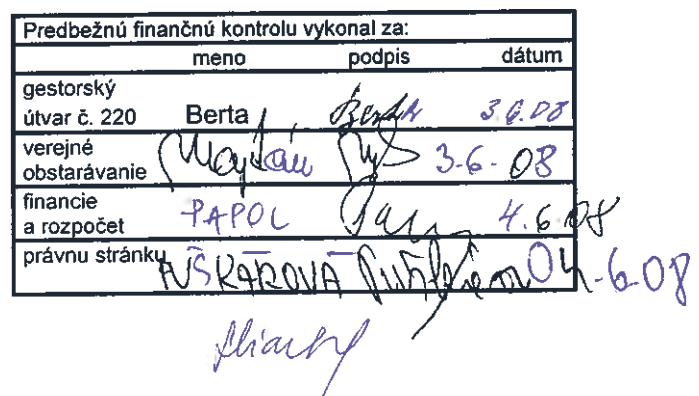 Predbežnú finančnú kontrolu vykonal za:
meno podpis dátum
gestorský
útvar č. 220 Berta Berta 3.6.08
verejné
obstarávanie Majtán 3-6-08
financie
a rozpočet PAPOL 4.6.08
právnu stránku PUŠKÁROVÁ 04-6-08